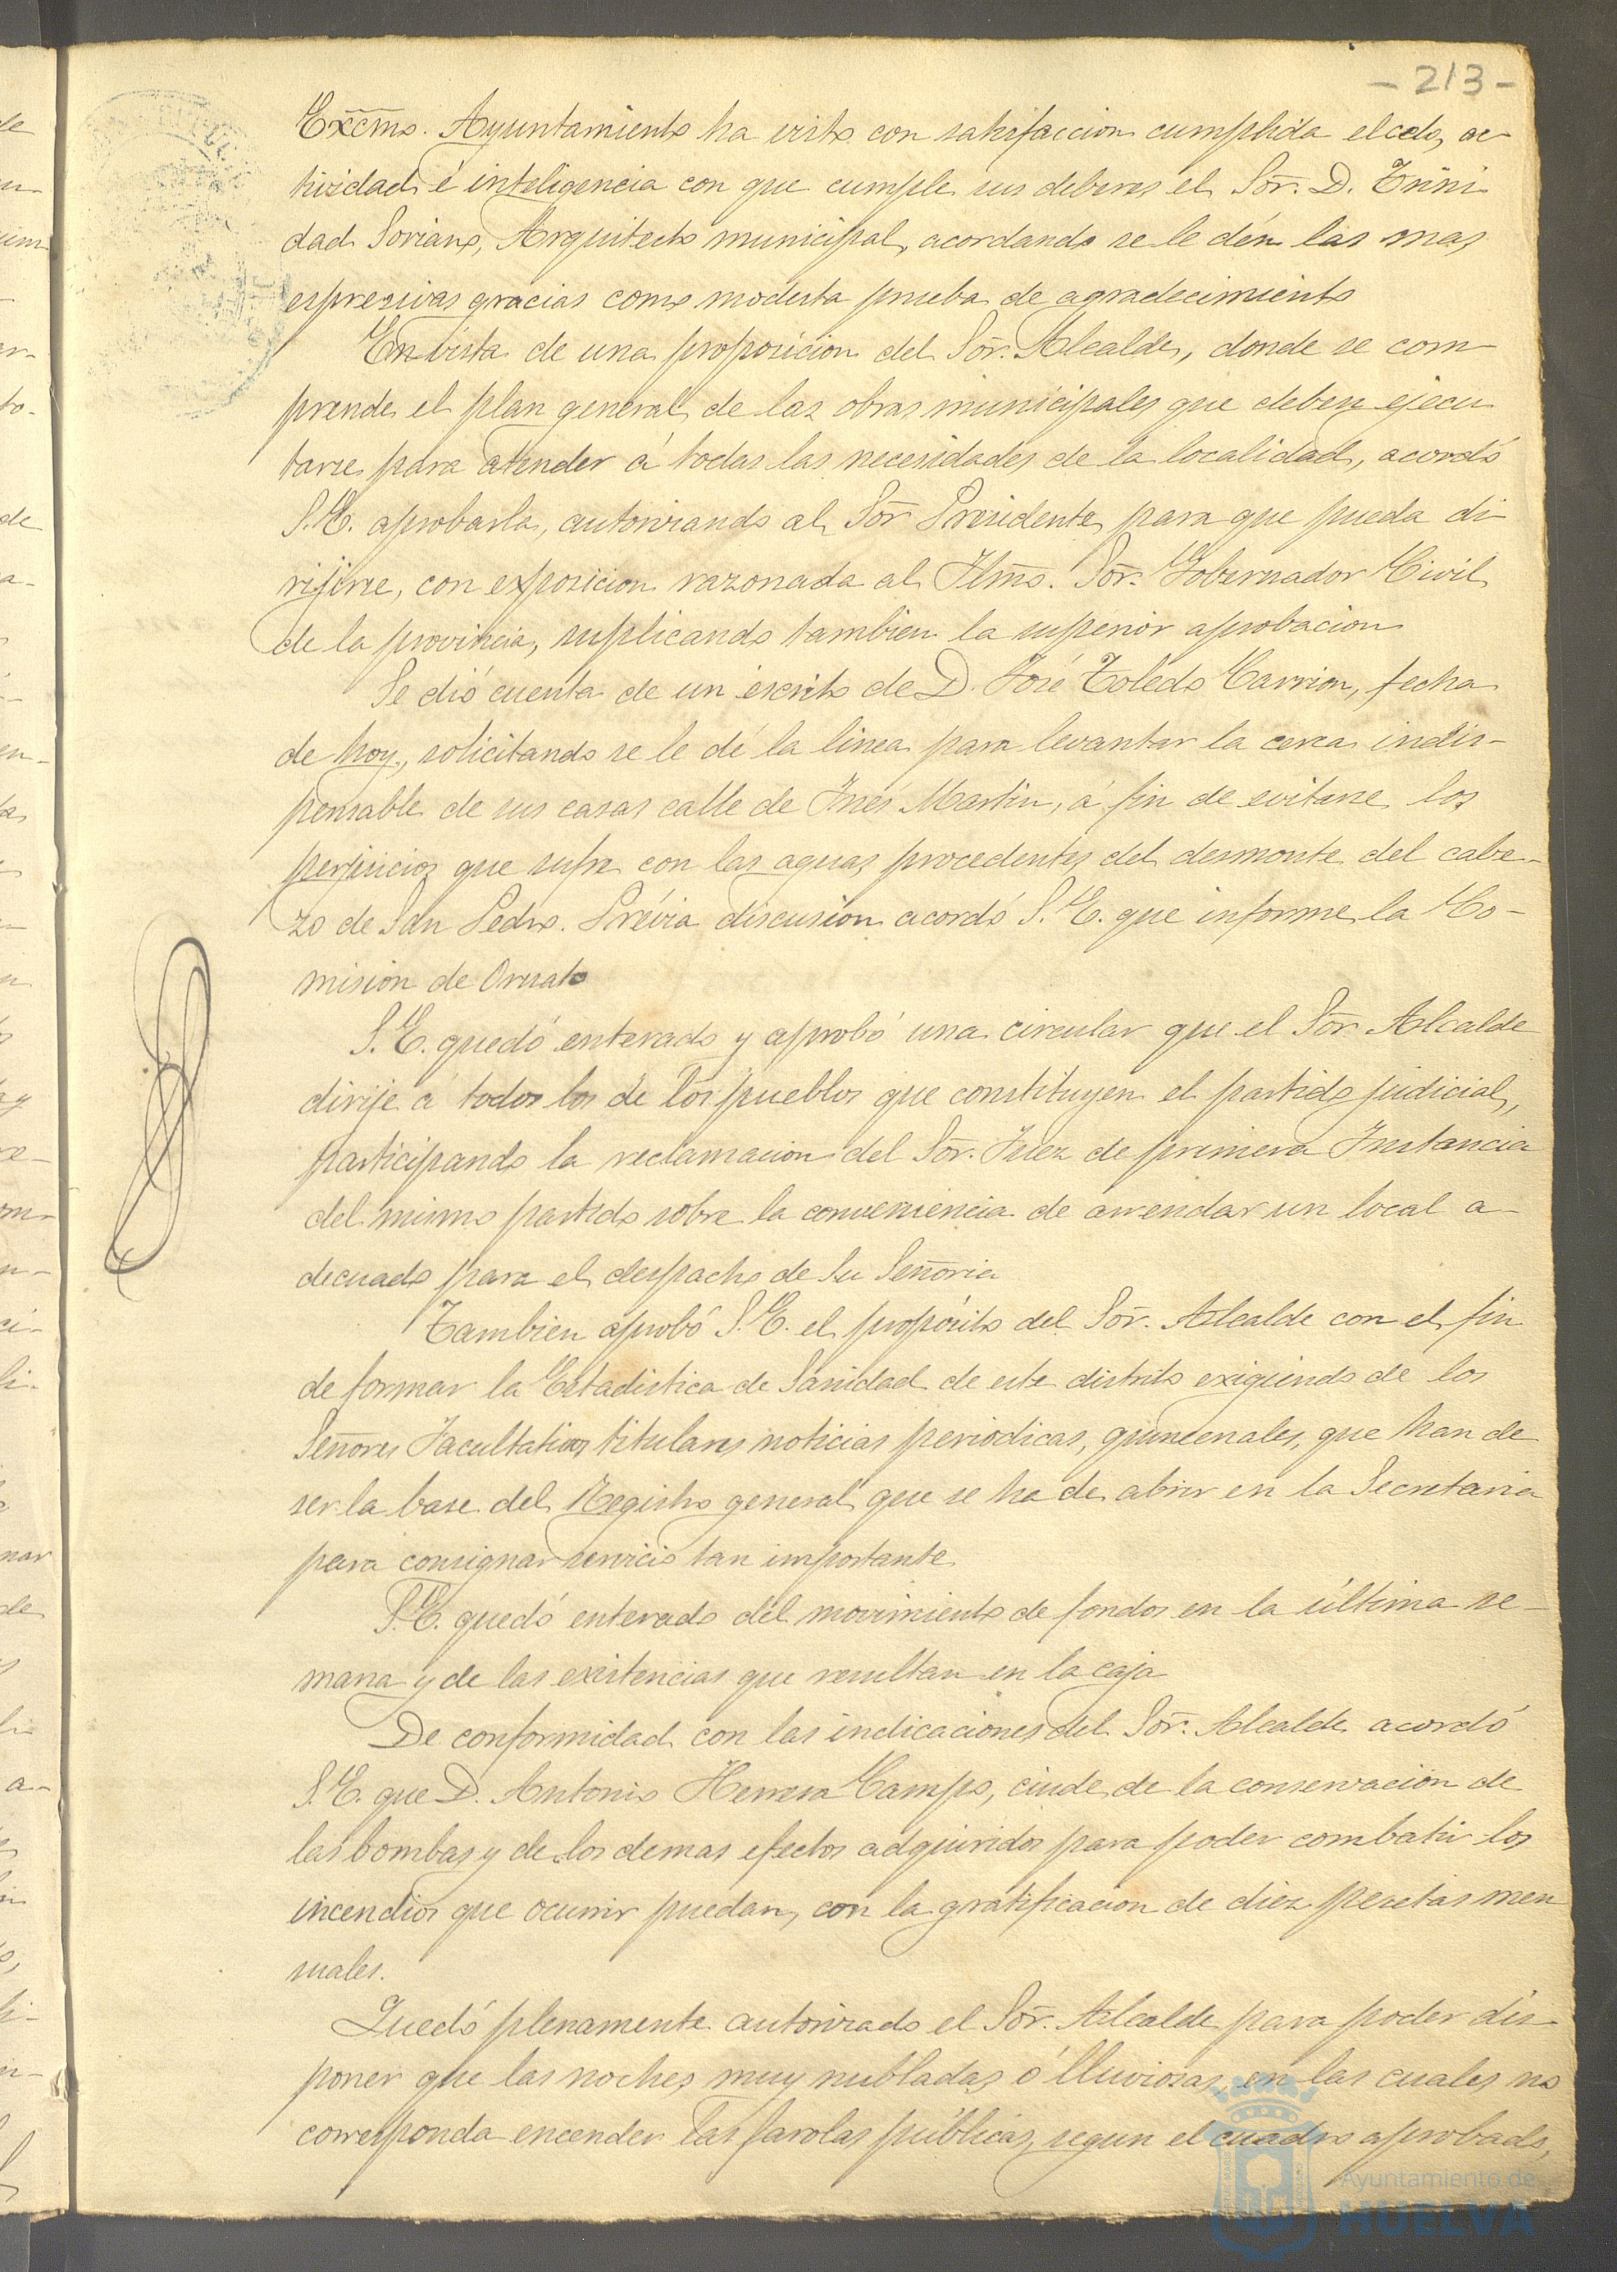 - 213 -
Excmo. Ayuntamiento ha visto con satisfaccion cumplida el celo, ac-
tividad é inteligencia con que cumple sus deberes el Sor. D. Trini-
dad Soriano, Arquitecto municipal, acordando se le dén las mas
espresivas gracias como modesta prueba de agradecimiento
En vista de una proposicion del Sor. Alcalde, donde se com-
prende el plan general de las obras municipales que deben ejecu-
tarse para atender á todas las necesidades de la localidad, acordó
S.E. aprobarla, autorizando al Sor Presidente para que pueda di-
rijirse, con exposicion razonada al Ilmo. Sor. Gobernador Civil
de la provincia, suplicando tambien la superior aprobacion
Se dió cuenta de un escrito de D. José Toledo Carrion, fecha
de hoy, solicitando se le dé la linea para levantar la cerca indis-
pensable de sus casas calle de Inés Martin, á fin de evitarse los
perjuicios que sufre con las aguas procedentes del desmonte del cabe-
zo de San Pedro. Prévia discusion acordó S.E. que informe la Co-
mision de Ornato
S.E. quedó enterado y aprobó una circular que el Sor. Alcalde
dirije á todos los de los pueblos que constituyen el partido judicial,
participando la reclamacion del Sor. Juez de primera Instancia
del mismo partido sobre la conveniencia de arrendar un local a-
decuado para el despacho de Su Señoria
Tambien aprobó S.E. el propósito del Sor. Alcalde con el fin
de formar la Estadistica de Sanidad de este distrito exigiendo de los
Señores Facultativos titulares noticias periódicas, quincenales, que han de
ser la base del Registro general que se ha de abrir en la Secretaria
para consignar servicio tan importante.
S.E. quedó enterado del movimiento de fondos en la última se-
mana y de las existencias que resultan en la caja
De conformidad con las indicaciones del Sor. Alcalde acordó
S.E. que D. Antonio Herrera Camps, ciude de la conservacion de
las bombas y de los demas efectos adquiridos para poder combatir los
incendios que ocurrir puedan, con la gratificacion de diez pesetas men
suales.
Quedó plenamente autorizado el Sor. Alcalde para poder dis-
poner que las noches muy nubladas ó lluviosas, en las cuales no
corresponda encender las farolas públicas, segun el cuadro aprobado,
Ayuntamiento de
HUELVA